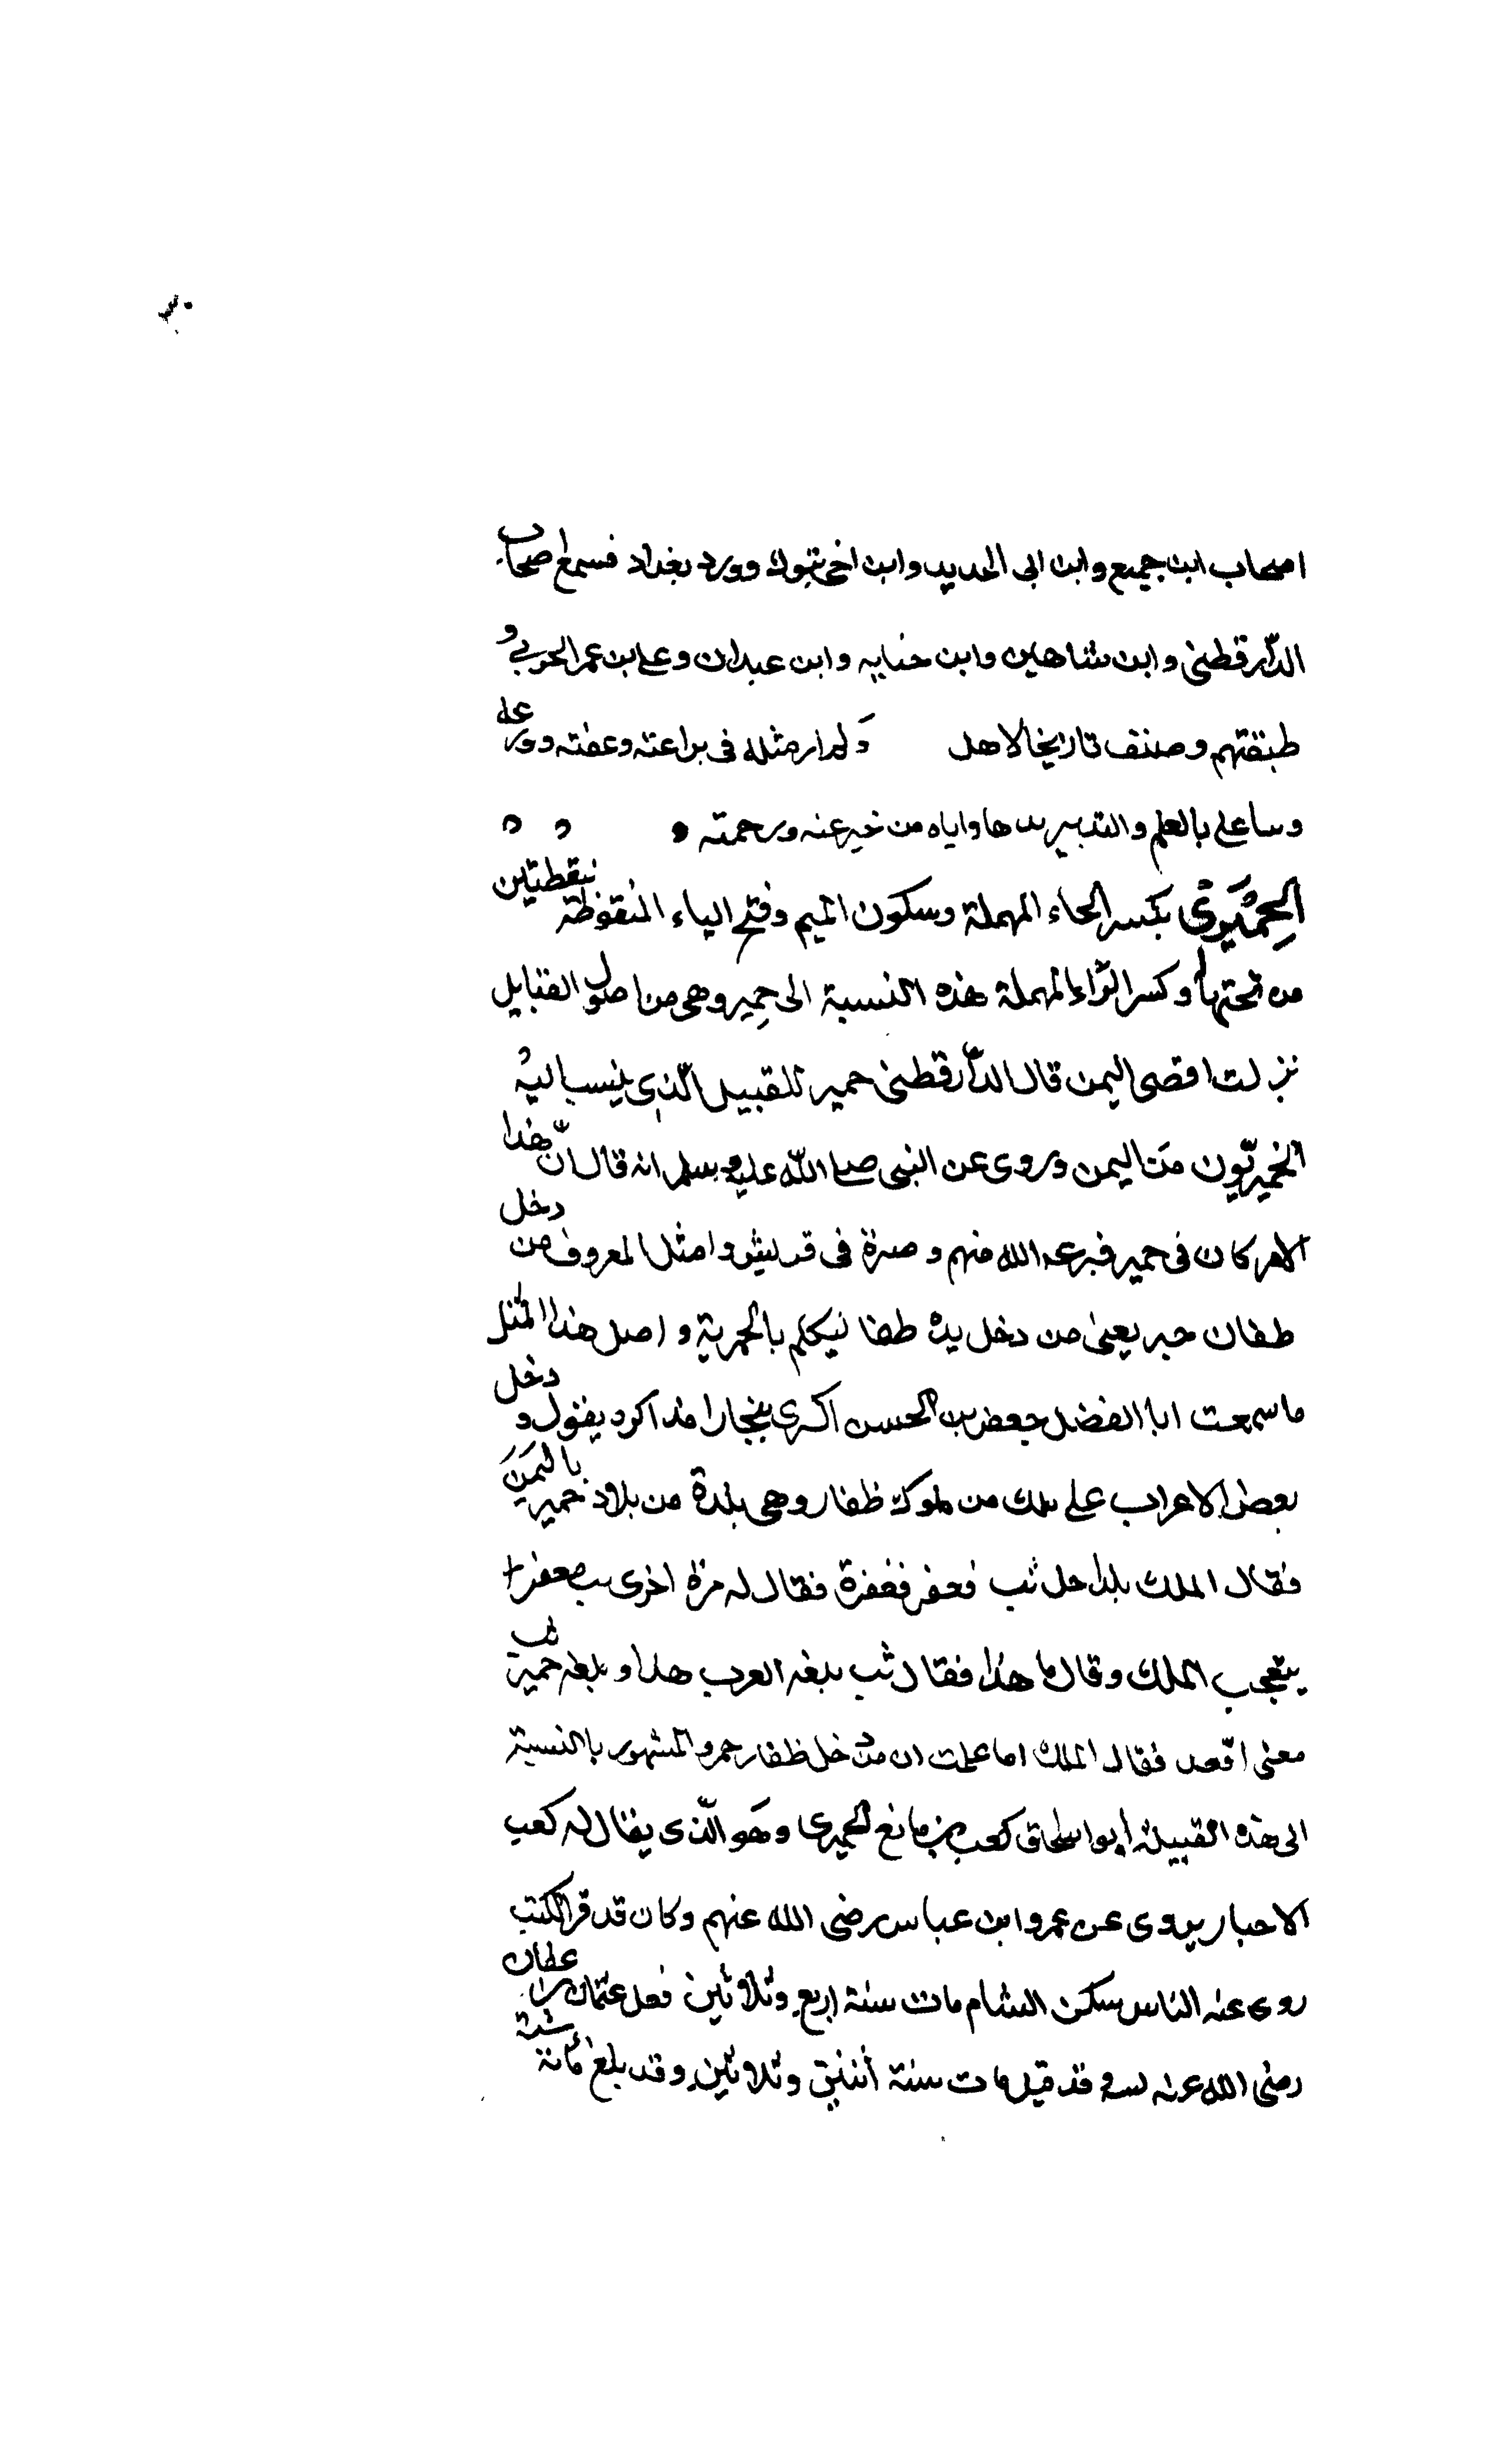 اصحاب ابن جميع وابن ابى الحديد وابن اخى تبوك وورد بغداد فسمع اصحاب
الدّارقطنى وابن شاهين وابن حبابه وابن عبدان وعلى بن عمر الحربى و
طبقتهم وصنف تاريخا لاهل ولم ار مثله فى براعته وعفته وورعه
بالعلم واياه من خير عنه ورحمته
الحِمْيَرى بكسر الحاء المهملة وسكون الميم وفتح الياء المنقوطة بنقطتين
من تحتها وكسر الرّاء المهملة هذه النسبة الى حِمير وهى من اصول القبايل
نزلت اقصى اليمن قال الدّارقطنى حمير للقبيل الّذى ينسب اليه
الحميريّون من اليمن وروى عن النبى صلى اللّه عليه وسلم انه قال انّ هذا
الامر كان فى حمير فنزعه الله منهم وصيره فى قريش وامثل المعروف من دخل
طفان حبر يعنى من دخل بلده طفا ليكلم بالحمرية واصل هذا المثل
ما سمعت ابا الفضل جعفر بن الحسن الكبرى ببخارا مذاكره يقول دخل
بعض الاعراب على ملك من ملوك ظفار وهى بلدة من بلاد حمير باليمن
فقال الملك ثب فقال له مرة اخرى
يتعجب الملك وقال ما هذا فقال ثب بلغه العرب هذا وبلغه حمير ثب
معنى اقعد فقال الملك اما علمت ان من دخل ظفار حمر والمشهور بالنسبة
الى هذه القبيلة ابو اسحاق كعب بن مانع الحميرى وهو الّذى يقال له كعب
الاحبار يروى عن عمر وابن عباس رضى الله عنهم وكان قد قرا الكتب
روى عنه الناس سكن الشام مات سنة اربع وثلاثين قبل عثمان بن عفان
رضى الله عنه وقد قيل مات سنة اثنتين وثلاثين وقد بلغ مائة سنة